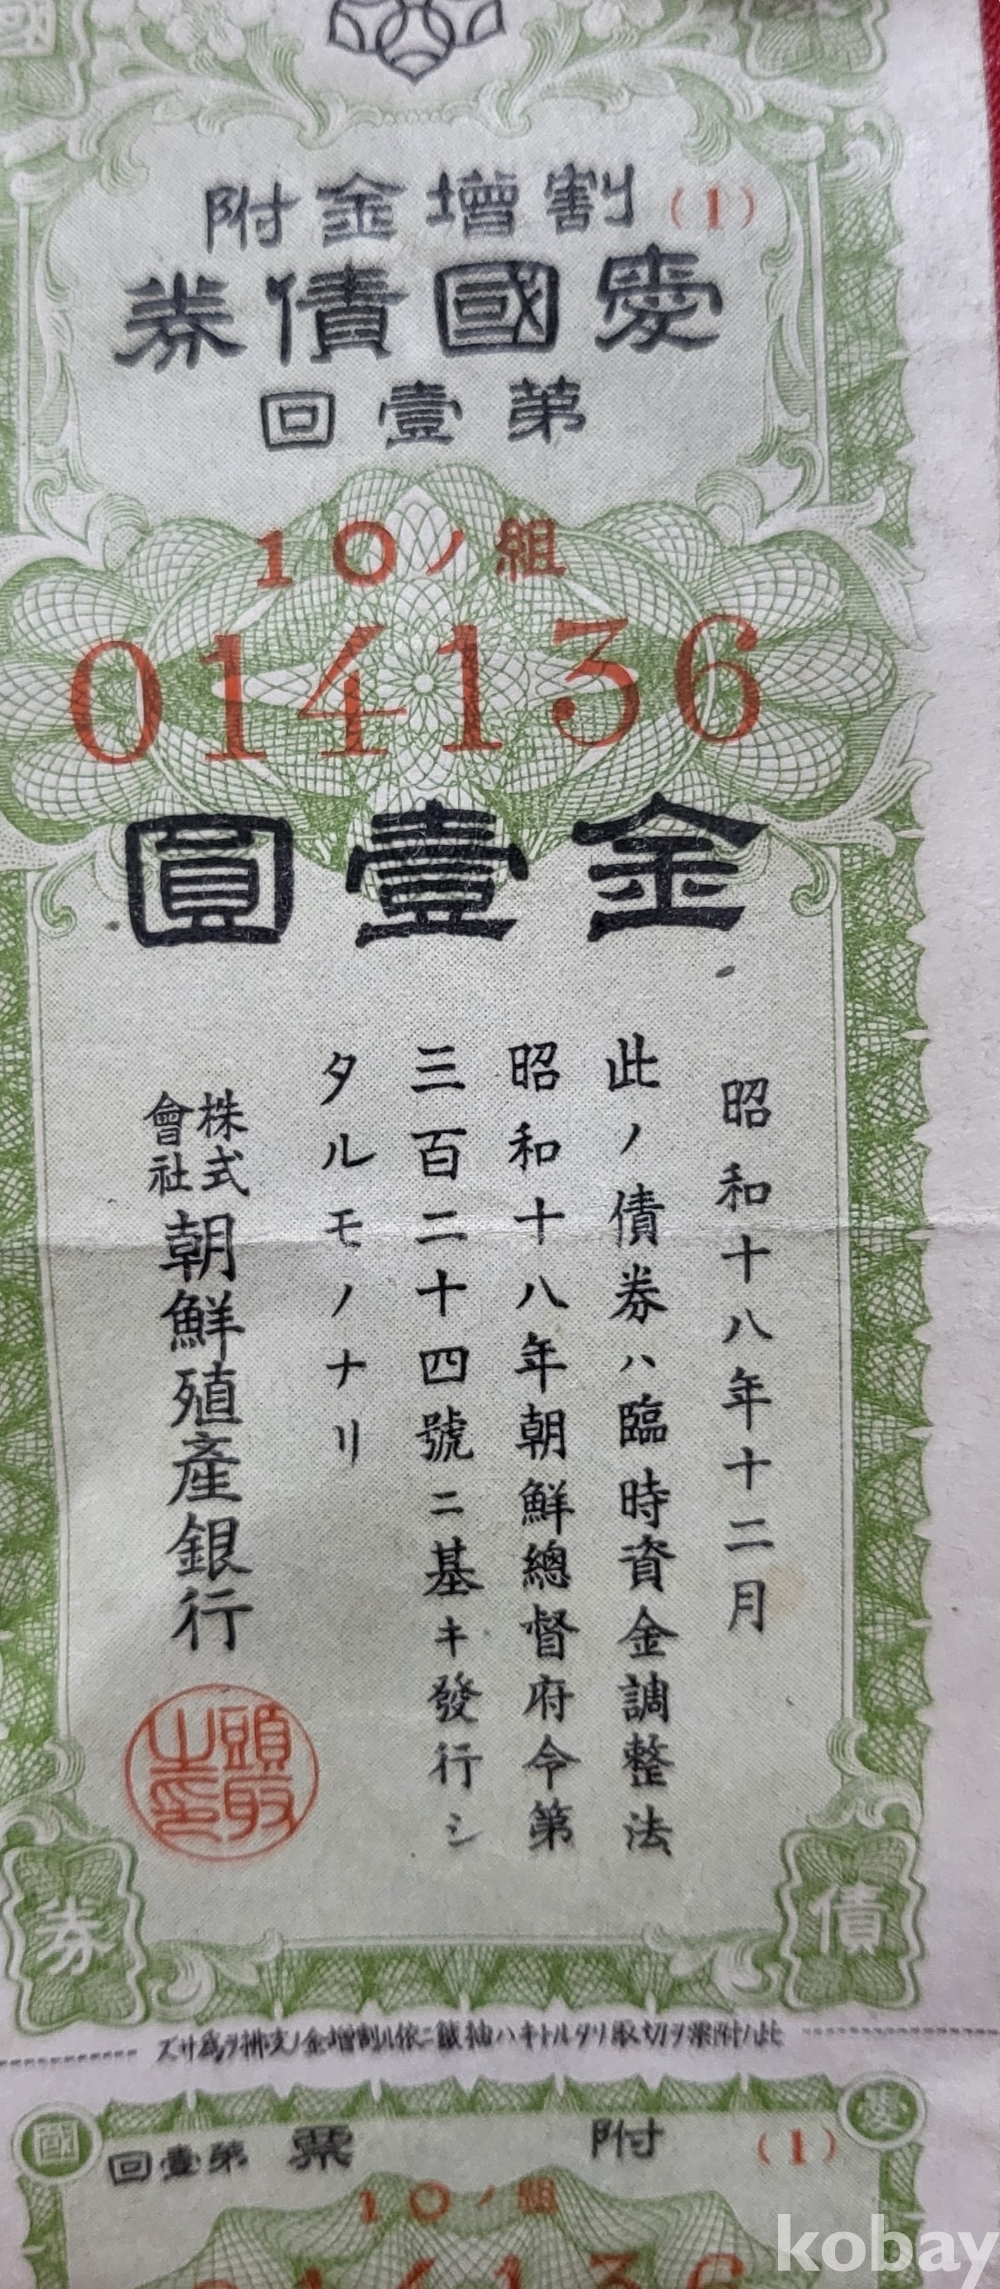 割增金附
(1)
愛國債券
第壹回
10ノ組
014136
金壹圓
昭和十八年十二月
此ノ債券ハ臨時資金調整法
昭和十八年朝鮮總督府令第
三百二十四號ニ基キ發行シ
タルモノナリ
株式
會社
朝鮮殖產銀行
頭取
之印
債
券
此ノ附票ヲ切リ取リタルトキハ抽籤ニ依ル割增金ノ支拂ヲ爲サズ
愛
國
附票
第壹回
(1)
10ノ組
014136
kobay